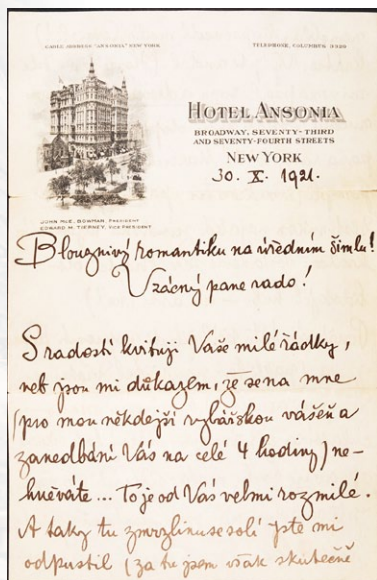 CABLE ADDRESS "ANSONIA" NEW YORK
TELEPHONE, COLUMBUS 3320
HOTEL ANSONIA
BROADWAY, SEVENTY-THIRD
AND SEVENTY-FOURTH STREETS
NEW YORK
30. X. 1921.
JOHN McE. BOWMAN, PRESIDENT
EDWARD M. TIERNEY, VICE PRESIDENT
Blouznivý romantiku na úředním šimlu!
Vzácný pane rado!
S radostí kvituji Vaše milé řádky,
neb jsou mi důkazem, že se na mne
(pro mou někdejší rybářskou vášeň a
zanedbání Vás na celé 4 hodiny) ne-
hněváte... To je od Vás velmi rozmilé.
A taky tu zmrzlinu se solí jste mi
odpustil (za tu jsem však skutečně